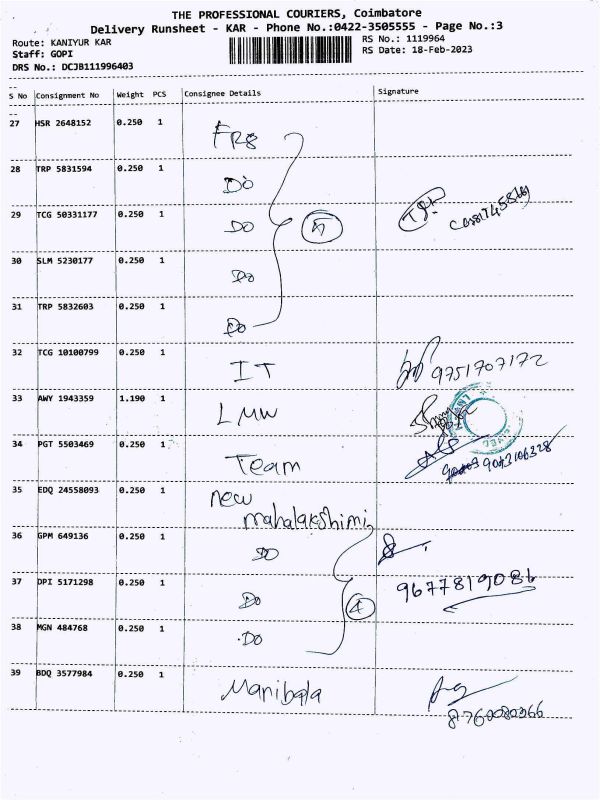 THE PROFESSIONAL COURIERS, Coimbatore
Delivery Runsheet - KAR - Phone No.:0422-3505555 - Page No.:3
Route: KANIYUR KAR
RS No.: 1119964
Staff: GOPI
RS Date: 18-Feb-2023
DRS No.: DCJB111996403
S No Consignment No Weight PCS Consignee Details Signature
27 HSR 2648152 0.250 1
28 TRP 5831594 0.250 1 Do
29 TCG 50331177 0.250 1 Do
30 SLM 5230177 0.250 1 Do
31 TRP 5832603 0.250 1 Do
32 TCG 10100799 0.250 1 IT 9751707172
33 AWY 1943359 1.190 1 LMW
34 PGT 5503469 0.250 1 Team 9043106328
35 EDQ 24558093 0.250 1 New
mahalakshimi
36 GPM 649136 0.250 1 Do
37 DPI 5171298 0.250 1 Do 9677819086
38 MGN 484768 0.250 1 Do
39 BDQ 3577984 0.250 1 Manibala